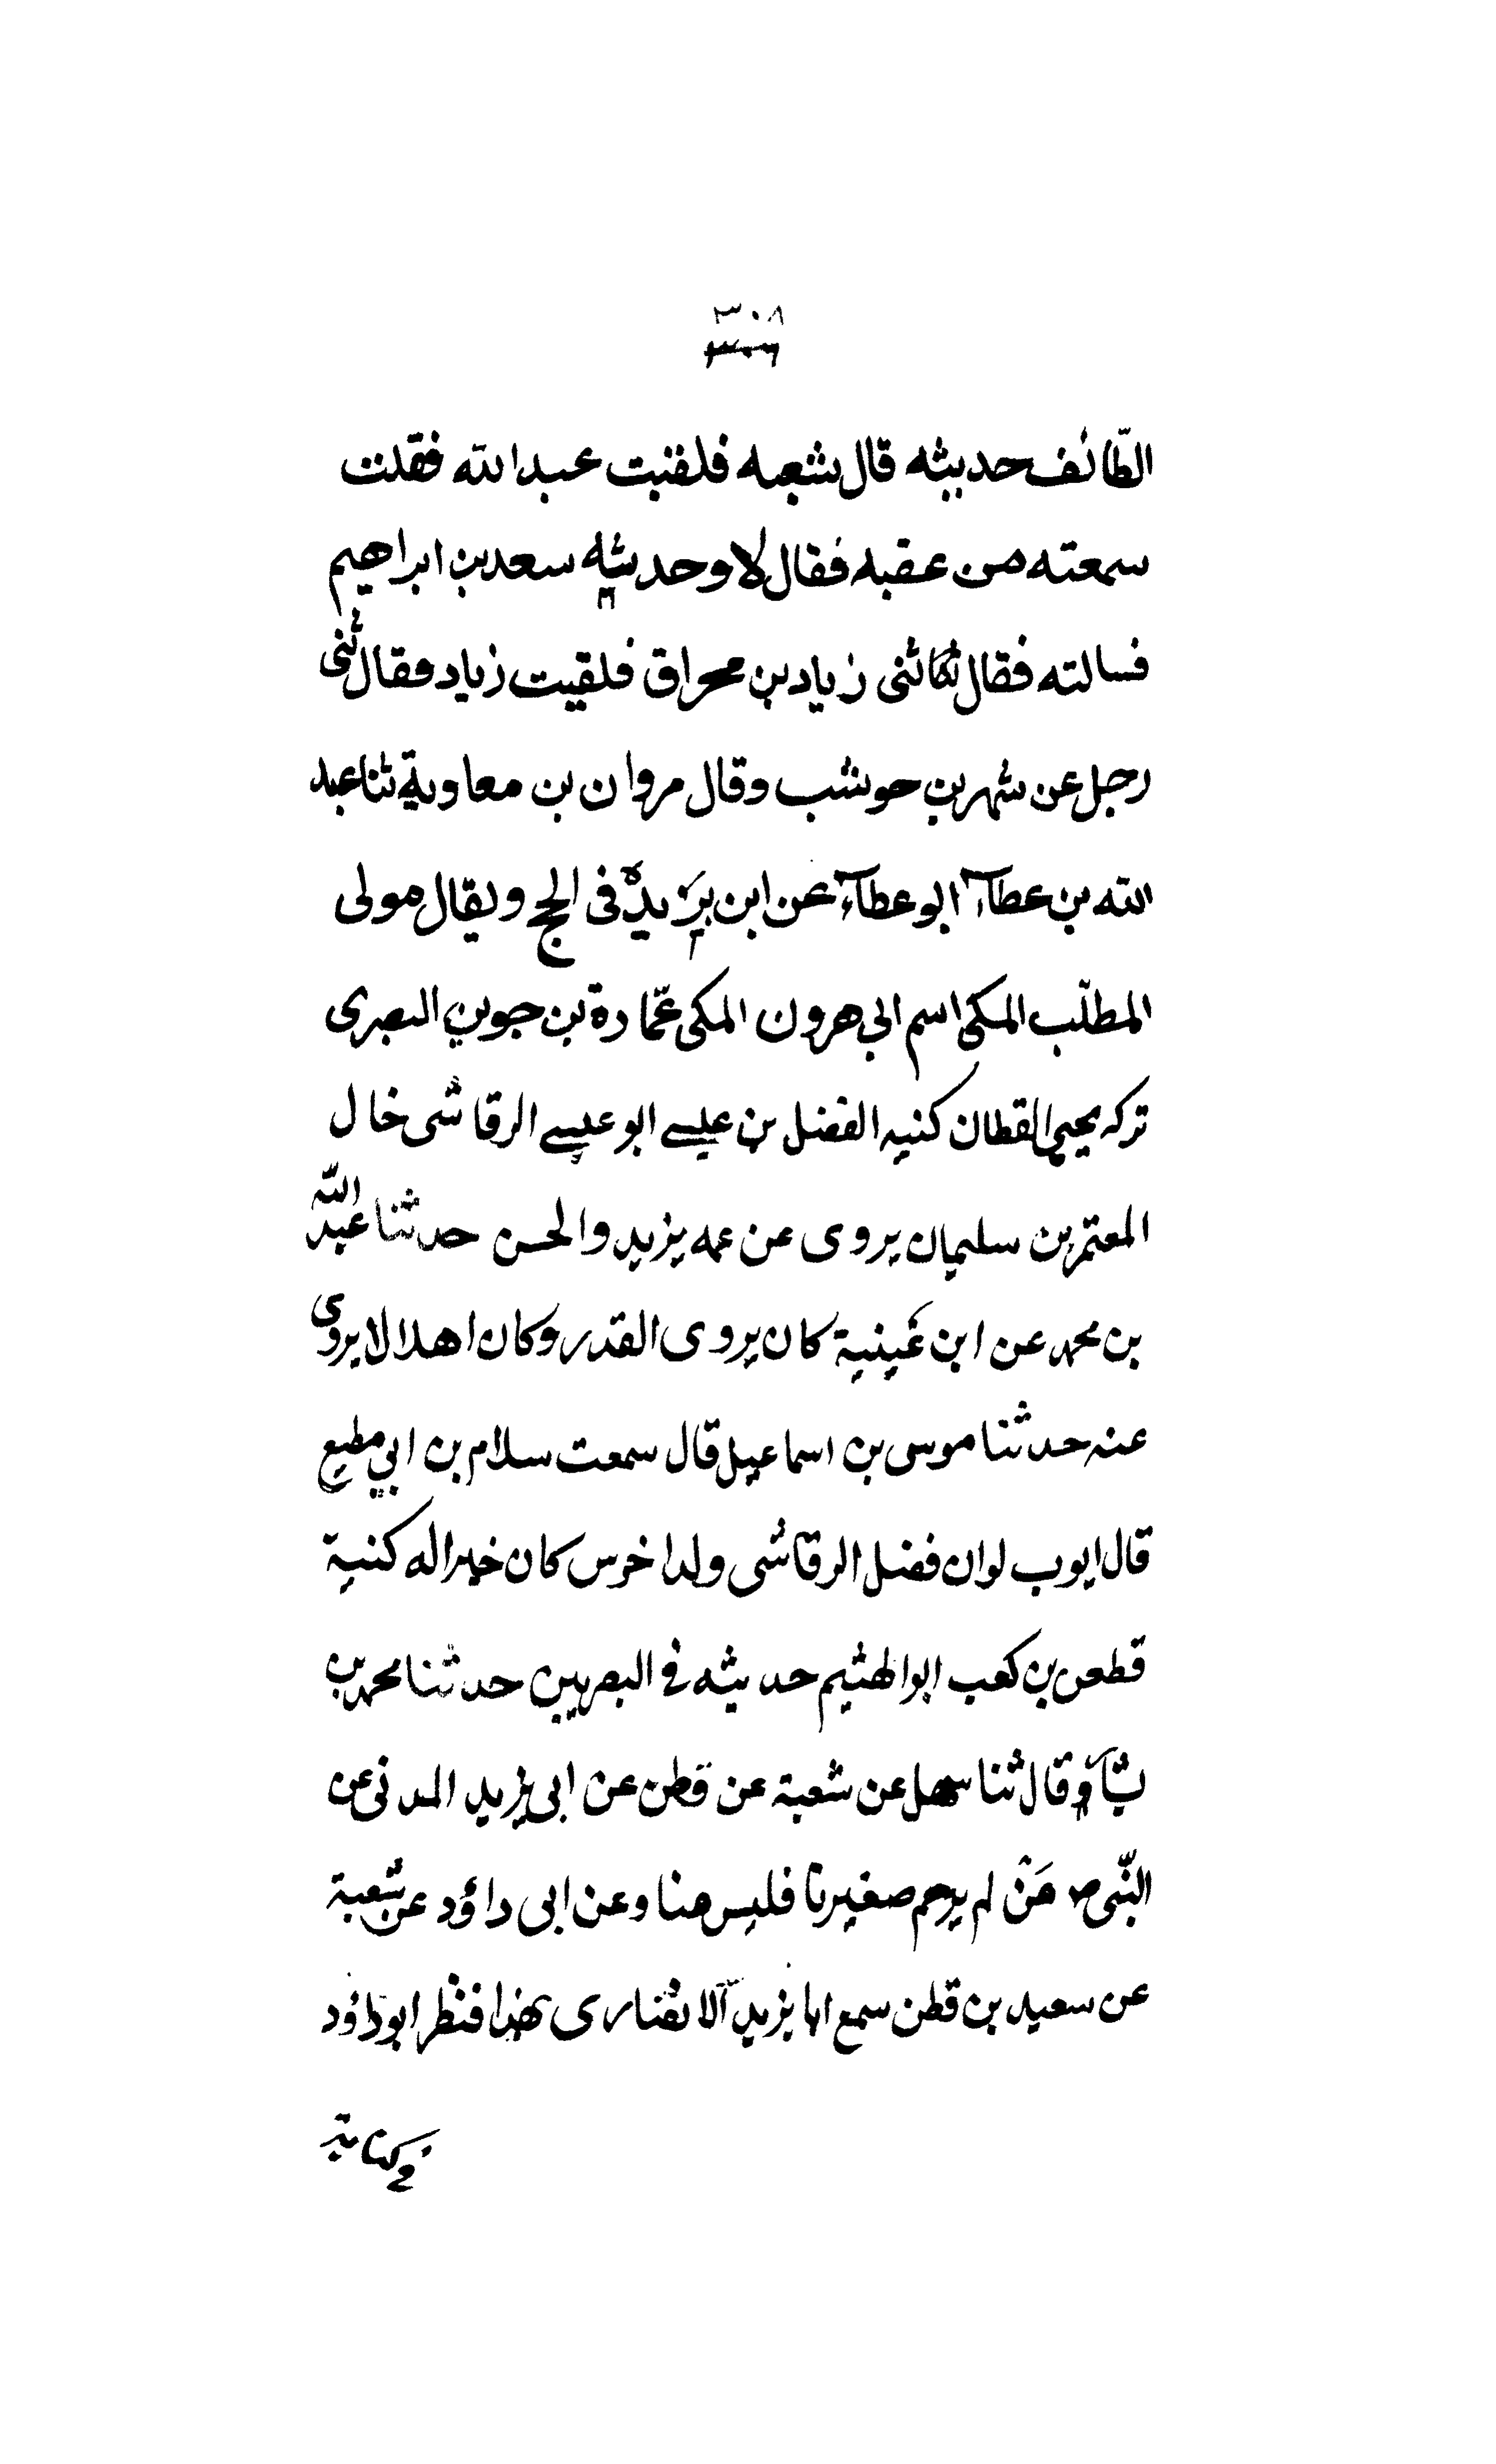 ٣٠٨
٣٠٦
الطّائف حديثه قال شعبه فلقيت عبدالله فقلت
سمعته من عقبه فقال لا وحدثنيه سعد بن ابراهيم
فسالته فقال ثنى زياد بن محراق فلقيت زياد فقال ثنى
رجل عن شهر بن حوشب وقال مروان بن معاوية ثنا عبد
الله بن عطآء ابو عطآء عن ابن بريدة فى الحج ويقال مولى
المطلّب المكى اسم ابى هرون المكى عمّارة بن جوين البصرى
تركه يحيى القطان كنيه الفضل بن عيسے ابو عيسے الرقاشى خال
المعتمر بن سليمان يروى عن عمه يزيد والحسن حدثنا عبد الله
بن محمد عن ابن عُيينية كان يروى القدر وكان اهلا لا يروى
عنه حدثنا موسى بن اسماعيل قال سمعت سلام بن ابي مطيع
قال ايوب لو ان فضل الرقاشى ولد اخرس كان خيرا له كنية
قطعن بن كعب ابو الهثيم حديثه فے البصريين حدثنا محمد بن
بشآر وقال ثنا سهل عن شعبة عن قطن عن ابى يزيد المدنى عن
النّبى ص مَنْ لم يرحم صغيرنا فليس منا وعن ابى داؤد عن شعبة
عن سعيد بن قطن سمع ابا يزيد الانصارى بهذا فنظر ابو داؤد
فے كتابة